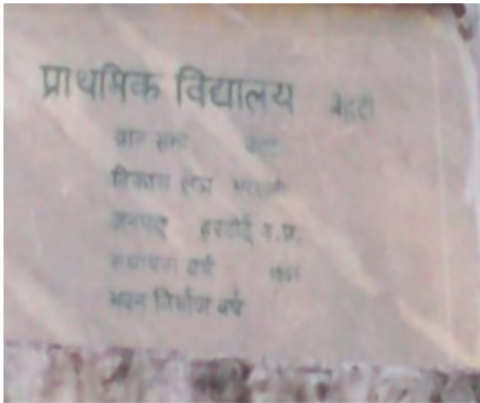 प्राथमिक विद्यालय बेहटी
ग्राम सभा
विकास क्षेत्र
जनपद हरदोई उ.प्र.
स्थापना वर्ष
भवन निर्माण वर्ष